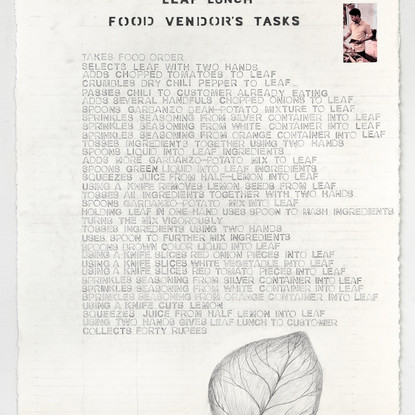 LEAF LUNCH
FOOD VENDOR'S TASKS
TAKES FOOD ORDER
SELECTS LEAF WITH TWO HANDS
ADDS CHOPPED TOMATOES TO LEAF
CRUMBLES DRY CHILI PEPPER TO LEAF
PASSES CHILI TO CUSTOMER ALREADY EATING
ADDS SEVERAL HANDFULS CHOPPED ONIONS TO LEAF
SPOONS GARDANZO BEAN-POTATO MIXTURE TO LEAF
SPRINKLES SEASONING FROM SILVER CONTAINER INTO LEAF
SPRINKLES SEASONING FROM WHITE CONTAINER INTO LEAF
SPRINKLES SEASONING FROM ORANGE CONTAINER INTO LEAF
TOSSES INGREDIENTS TOGETHER USING TWO HANDS
SPOONS LIQUID INTO LEAF INGREDIENTS
ADDS MORE GARDANZO-POTATO MIX TO LEAF
SPOONS GREEN LIQUID INTO LEAF INGREDIENTS
SQUEEZES JUICE FROM HALF-LEMON INTO LEAF
USING A KNIFE REMOVES LEMON SEEDS FROM LEAF
TOSSES ALL INGREDIENTS TOGETHER WITH TWO HANDS
SPOONS GARDANZO-POTATO MIX INTO LEAF
HOLDING LEAF IN ONE HAND USES SPOON TO MASH INGREDIENTS
TURNS THE MIX VIGOROUSLY
TOSSES INGREDIENTS USING TWO HANDS
USES SPOON TO FURTHER MIX INGREDIENTS
SPOONS BROWN COLOR LIQUID INTO LEAF
USING A KNIFE SLICES RED ONION PIECES INTO LEAF
USING A KNIFE SLICES WHITE VEGETABLE INTO LEAF
USING A KNIFE SLICES RED TOMATO PIECES INTO LEAF
SPRINKLES SEASONING FROM SILVER CONTAINER INTO LEAF
SPRINKLES SEASONING FROM WHITE CONTAINER INTO LEAF
SPRINKLES SEASONING FROM ORANGE CONTAINER INTO LEAF
USING A KNIFE CUTS LEMON
SQUEEZES JUICE FROM HALF LEMON INTO LEAF
USING TWO HANDS GIVES LEAF LUNCH TO CUSTOMER
COLLECTS FORTY RUPEES